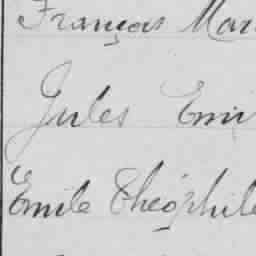 François Mar
Jules Emi
Emile Théophile